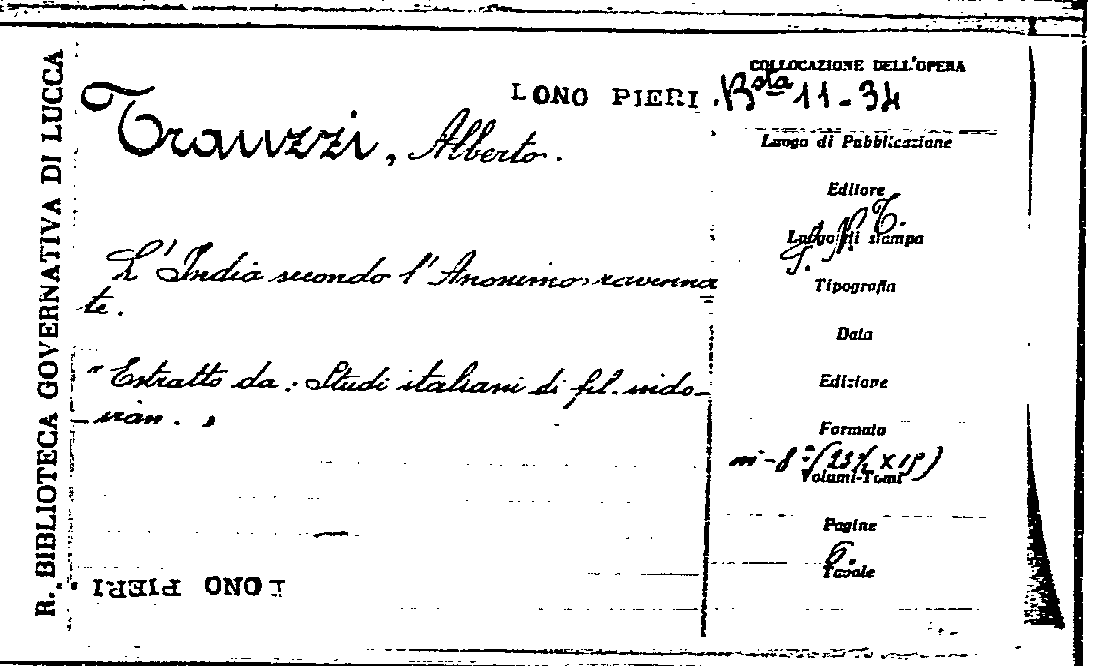 R. BIBLIOTECA GOVERNATIVA DI LUCCA
COLLOCAZIONE DELL'OPERA
LONO PIERI
Bsta 11-34
Trauzzi, Alberto.
Luogo di Pubblicazione
Editore
S. N. T.
Luogo di stampa
L'India secondo l'Anonimo ravenna
te.
Tipografia
Data
"Estratto da: Studi italiani di fil. indo-
iran. "
Edizione
Formato
in-8° (23½ x 15)
Volumi-Tomi
Pagine
6.
Tavole
LONO PIERI